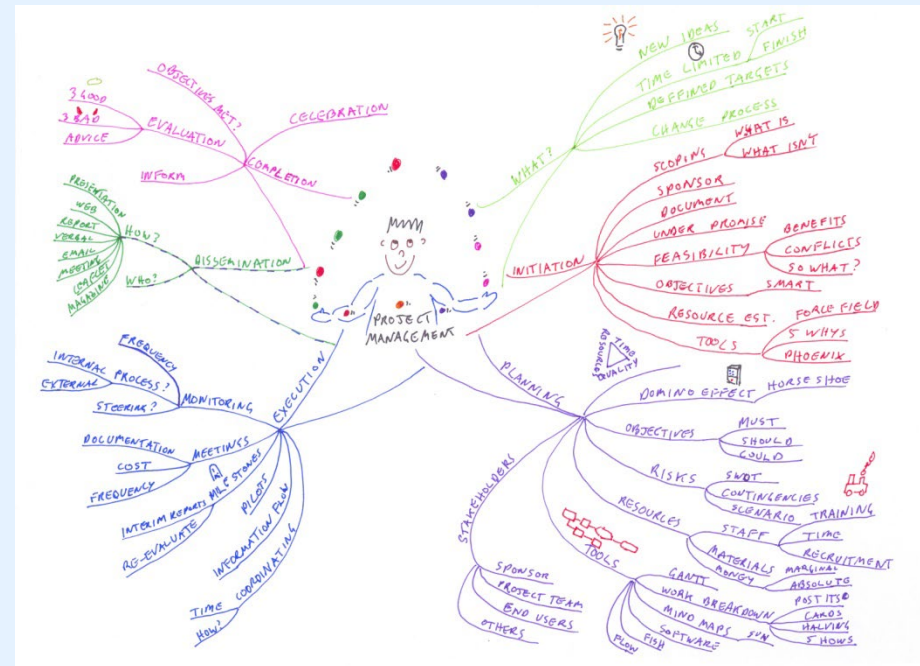 PROJECT
MANAGEMENT
WHAT?
NEW IDEAS
TIME LIMITED
START
FINISH
DEFFINED TARGETS
CHANGE PROCESS
INITIATION
SCOPING
WHAT IS
WHAT ISN'T
SPONSOR
DOCUMENT
UNDER PROMISE
FEASIBILITY
BENEFITS
CONFLICTS
SO WHAT?
OBJECTIVES
SMART
RESOURCE EST.
TOOLS
FORCE FIELD
5 WHYS
PHOENIX
PLANNING
TIME
QUALITY
RESOURCES
DOMINO EFFECT
HORSE SHOE
OBJECTIVES
MUST
SHOULD
COULD
RISKS
SWOT
CONTINGENCIES
SCENARIO
RESOURCES
STAFF
TRAINING
TIME
RECRUITMENT
MATERIALS
MONEY
MARGINAL
ABSOLUTE
TOOLS
GANTT
WORK BREAKDOWN
POST ITS
CARDS
HALVING
5 HOWS
MIND MAPS
SUN
SOFTWARE
FISH
FLOW
STAKEHOLDERS
SPONSOR
PROJECT TEAM
END USERS
OTHERS
EXECUTION
MONITORING
FREQUENCY
INTERNAL PROCESS?
EXTERNAL
STEERING?
MEETINGS
DOCUMENTATION
COST
FREQUENCY
MILE STONES
INTERIM REPORTS
RE-EVALUATE
PILOTS
INFORMATION FLOW
COORDINATING
TIME
HOW?
DISSEMINATION
HOW?
WEB
REPORT
VERBAL
EMAIL
MEETING
LEAFLET
MAGAZINE
WHO?
COMPLETION
OBJECTIVES MET?
CELEBRATION
EVALUATION
3 GOOD
3 BAD
ADVICE
INFORM